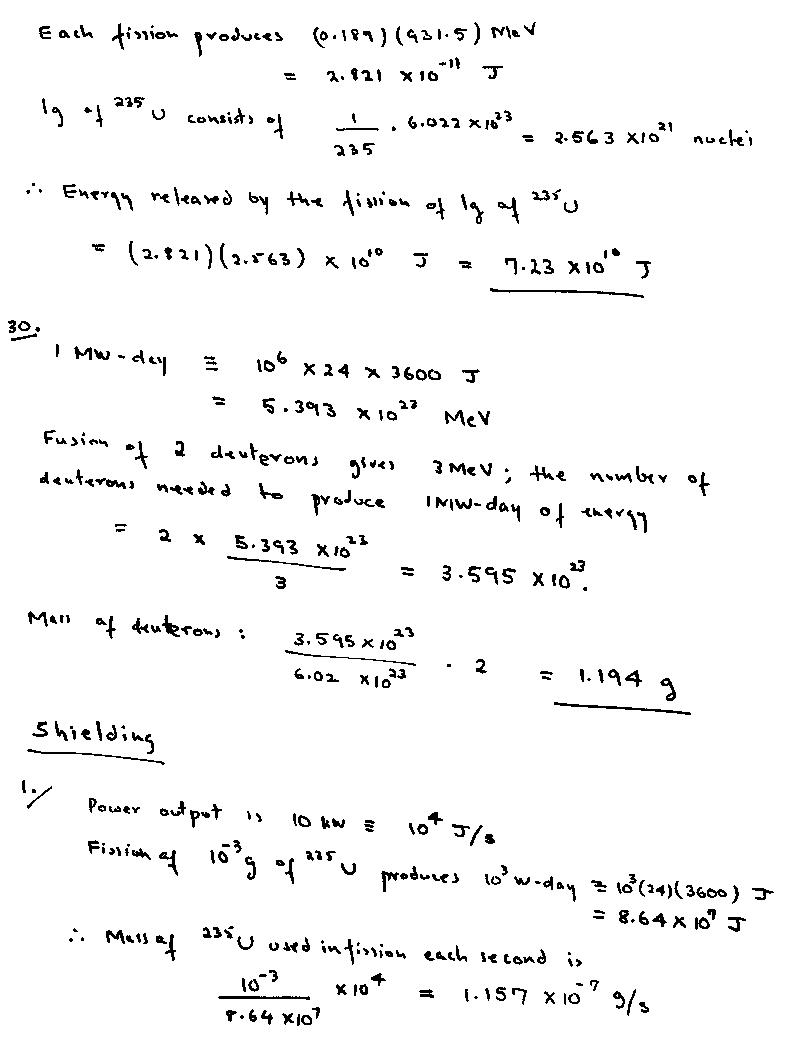 Each fission produces (0.189)(931.5) MeV
= 2.821 × 10⁻¹¹ J
1g of ²³⁵U consists of 1/235 · 6.022 × 10²³ = 2.563 × 10²¹ nuclei
∴ Energy released by the fission of 1g of ²³⁵U
= (2.821)(2.563) × 10¹⁰ J = 7.23 × 10¹⁰ J
30.
1 MW-day ≡ 10⁶ × 24 × 3600 J
= 5.393 × 10²³ MeV
Fusion of 2 deuterons gives 3 MeV; the number of
deuterons needed to produce 1MW-day of energy
= 2 × 5.393 × 10²³/3 = 3.595 × 10²³.
Mass of deuterons: 3.595 × 10²³/6.02 × 10²³ · 2 = 1.194 g
Shielding
1./
Power output is 10 kW ≡ 10⁴ J/s
Fission of 10⁻³g of ²³⁵U produces 10³ W-day ≡ 10³(24)(3600) J
= 8.64 × 10⁷ J
∴ Mass of ²³⁵U used in fission each second is
10⁻³/8.64 × 10⁷ × 10⁴ = 1.157 × 10⁻⁷ g/s